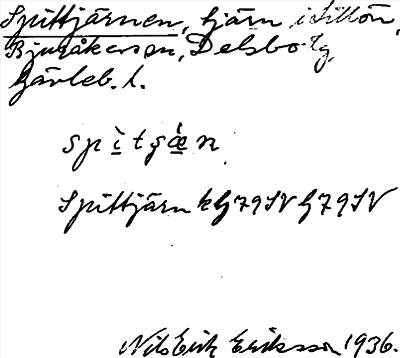 Spittjärnen, tjärn i Sillön,
Bjuråkers sn, Delsbo tg,
Gävleb. l.
spìtgæ̀n
Spittjärn kG79SV G79SV
Nils Erik Eriksson 1936.